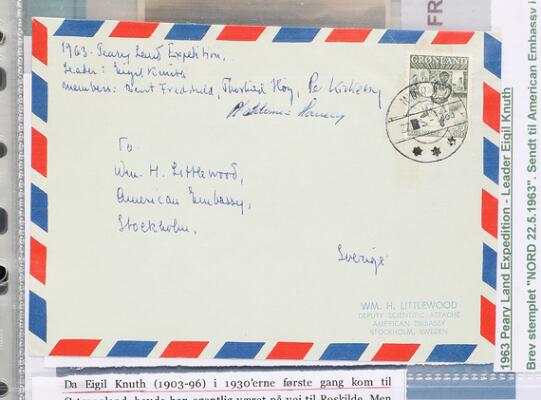 1963. Peary Land Expedition,
Leader: Eigil Knuth
members: Bent Fredskild, Thorkild Høy, Per Kirkeby
GRØNLAND
To.
Wm. H. Littlewood,
American Embassy,
Stockholm,
Sverige
WM. H. LITTLEWOOD
DEPUTY SCIENTIFIC ATTACHE
AMERICAN EMBASSY
STOCKHOLM, SWEDEN
FR
1963 Peary Land Expedition - Leader Eigil Knuth
Brev stemplet "NORD 22.5.1963". Sendt til American Embassy i
Da Eigil Knuth (1903-96) i 1930'erne første gang kom til